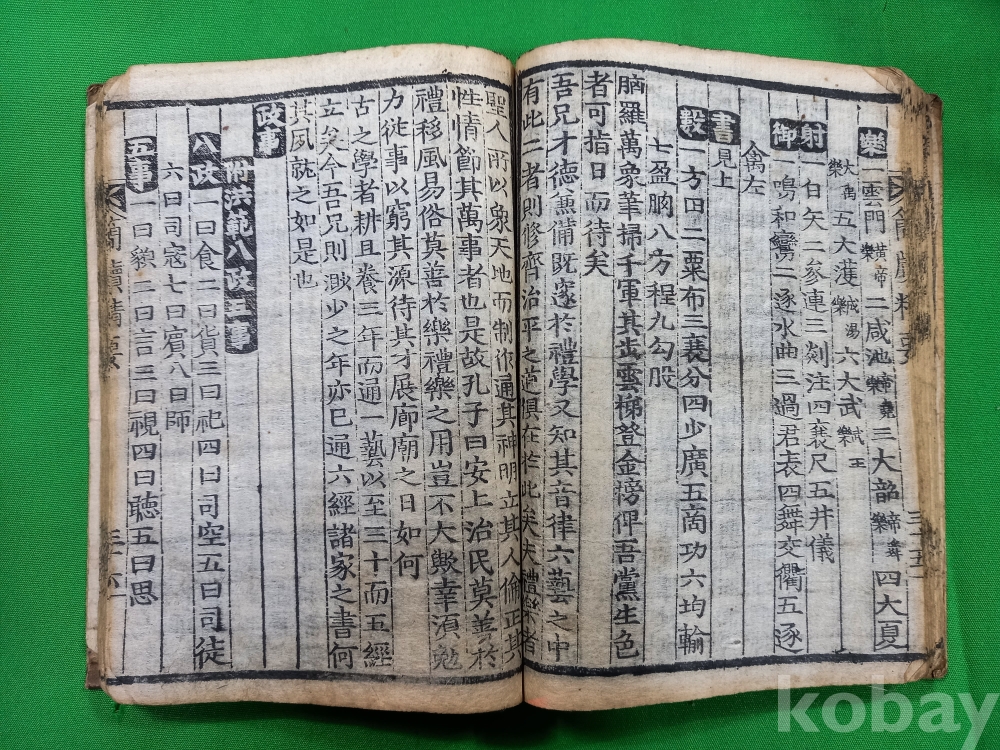 樂 一雲門 黃帝樂 二咸池 帝堯樂 三大韶 帝舜樂 四大夏
大禹樂 五大濩 成湯樂 六大武 武王樂
射 一白矢二參連三剡注四襄尺五井儀
御 一鳴和鸞二逐水曲三過君表四舞交衢五逐
禽左
書 見上
數 一方田二粟布三衰分四少廣五商功六均輸
七盈朒八方程九勾股
腦羅萬象筆掃千軍其步雲梯登金榜俾吾黨生色
者可指日而待矣
吾兄才德兼備既邃於禮學又知其音律六藝之中
有此二者則修齊治平之道俱在於此矣夫禮樂者
聖人所以象天地而制作通其神明立其人倫正其
性情節其萬事者也是故孔子曰安上治民莫善於
禮移風易俗莫善於樂禮樂之用豈不大歟幸須勉
力從事以窮其源待其才展廊廟之日如何
古之學者耕且養三年而通一藝以至三十而五經
立矣今吾兄則渺少之年亦已通六經諸家之書何
其夙就之如是也
政事
附洪範八政五事
八政 一曰食二曰貨三曰祀四曰司空五曰司徒
六曰司寇七曰賓八曰師
五事 一曰貌二曰言三曰視四曰聽五曰思
簡牘精要 三十六
kobay